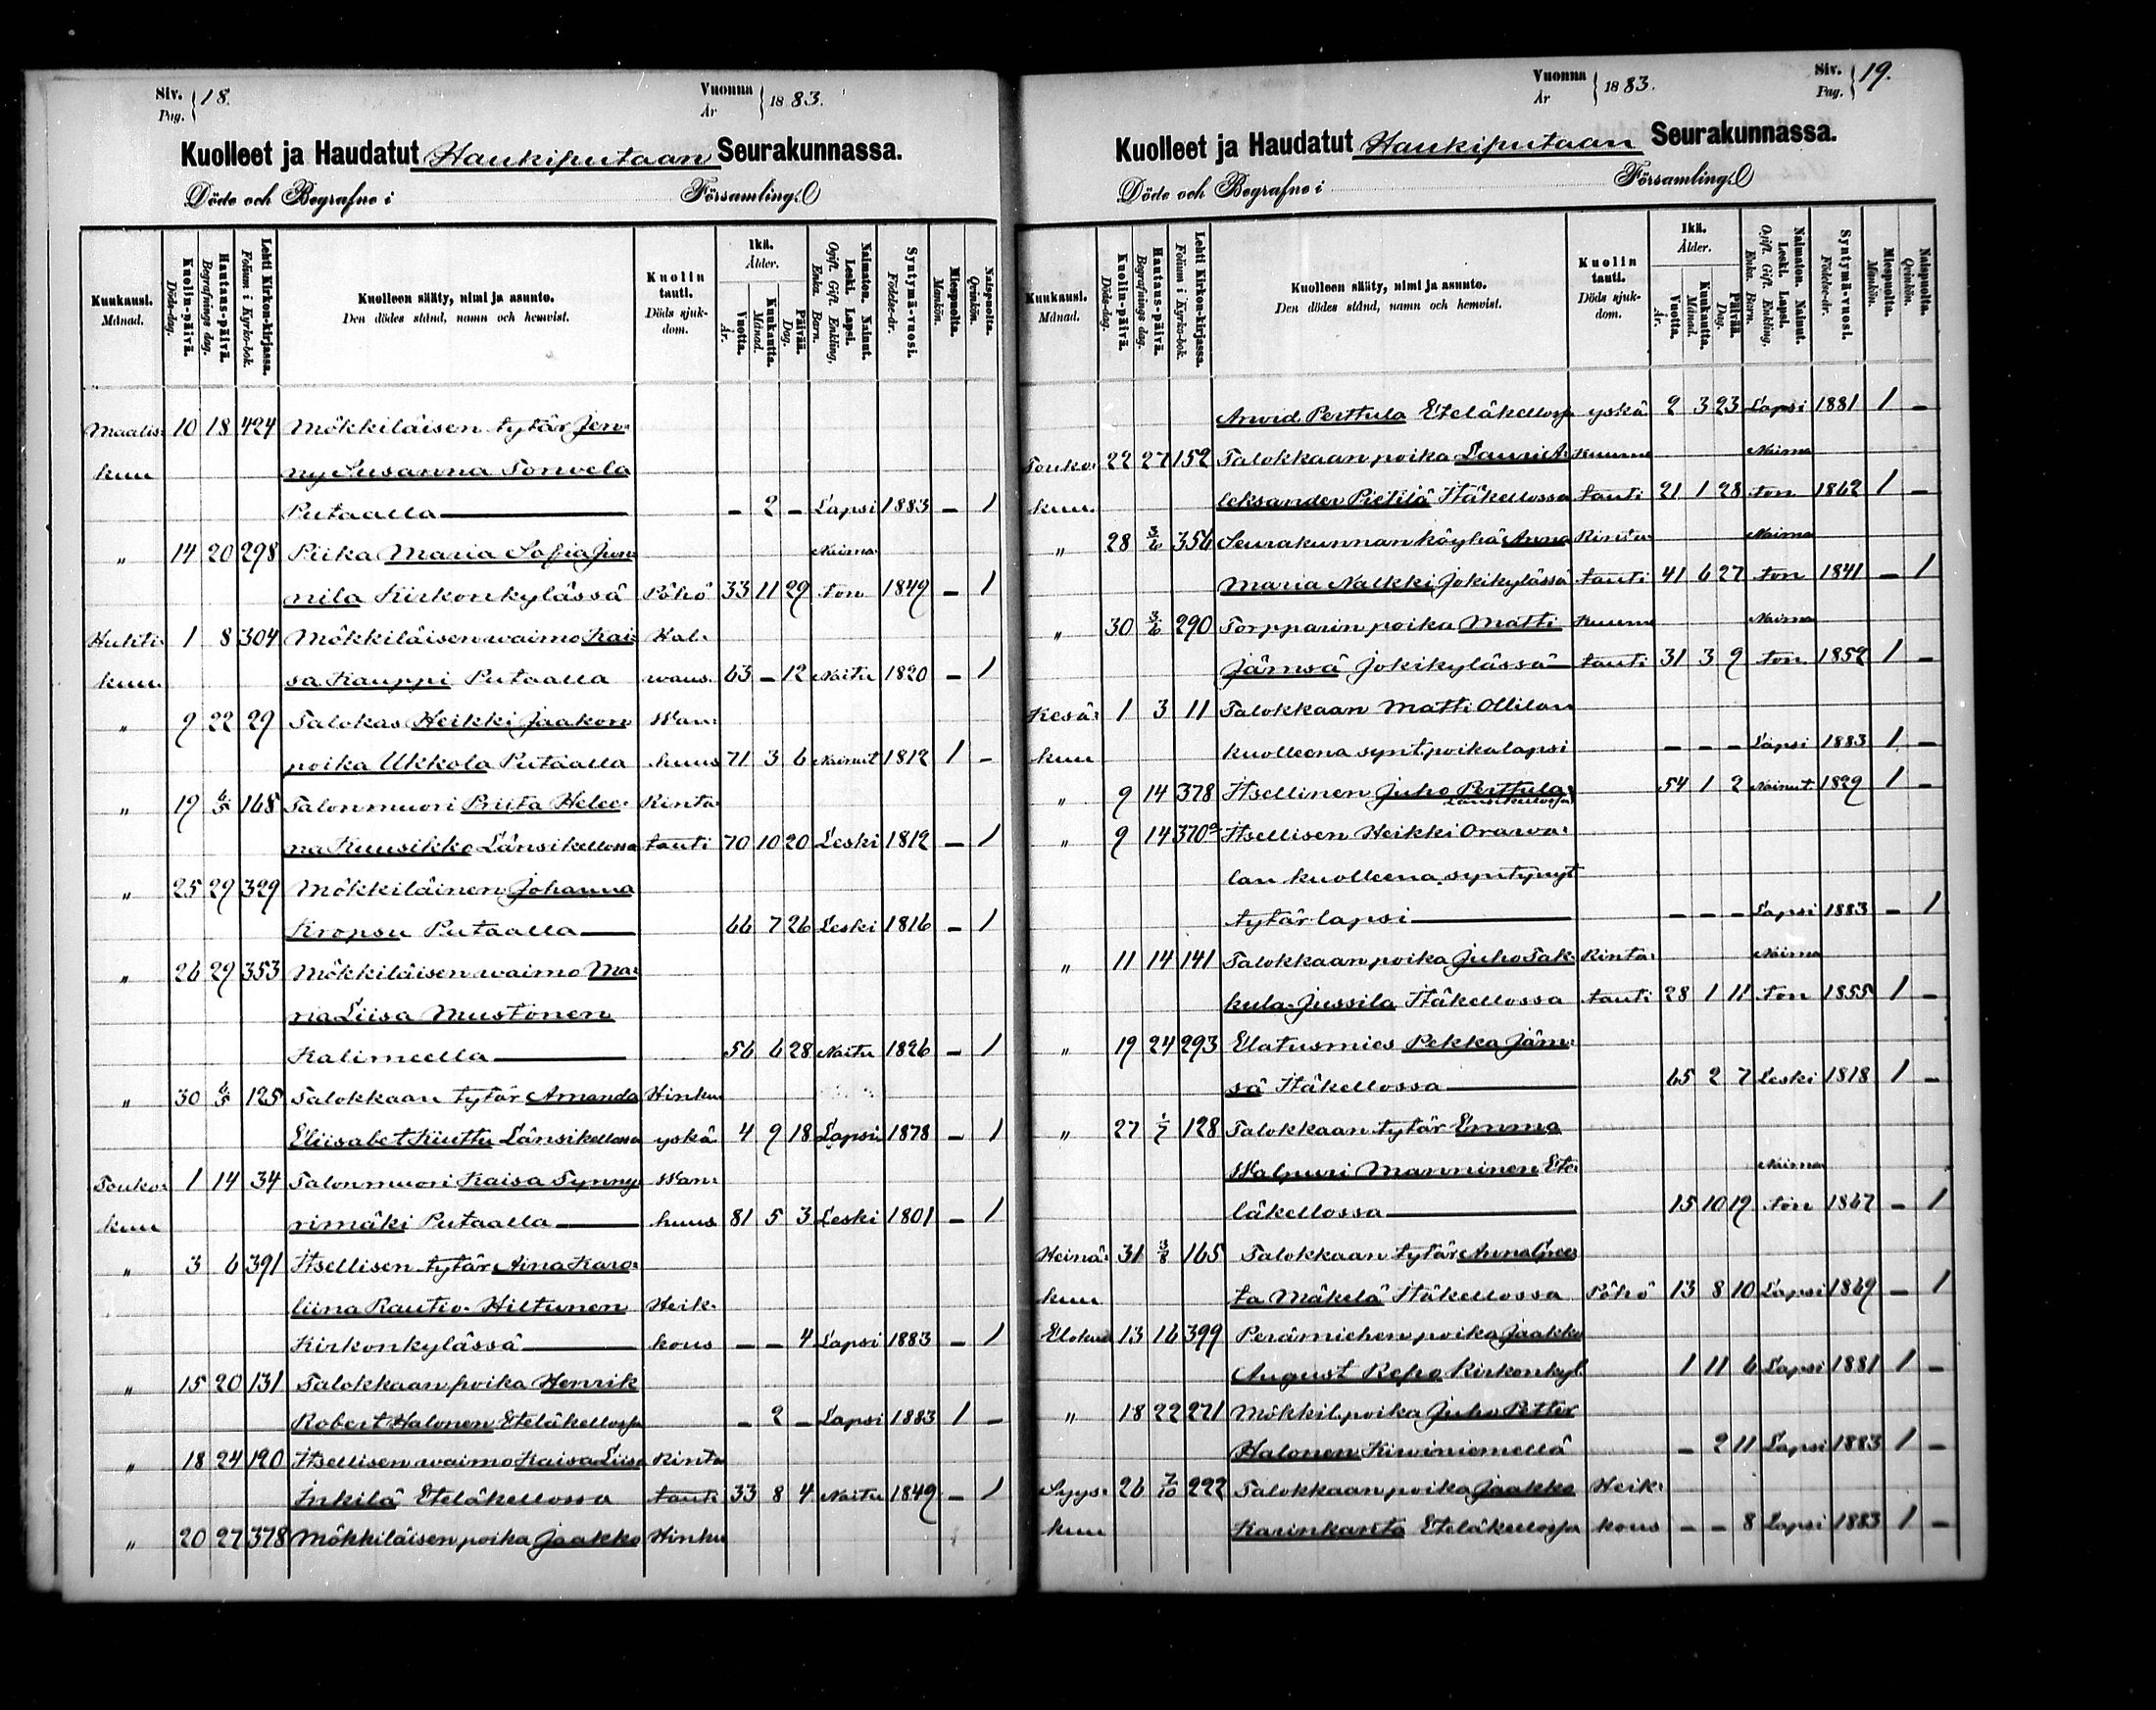 Siv. Pag. 18.
Vuonna År 1883.
Kuolleet ja Haudatut Haukiputaan Seurakunnassa.
Döde och Begrafne i Församling.
Kuukausi. Månad.
Kuolin-päivä. Döds-dag.
Hautaus-päivä. Begrafnings dag.
Lehti Kirkon-kirjassa. Folium i Kyrko-bok.
Kuolleen sääty, nimi ja asunto. Den dödes stånd, namn och hemvist.
Kuolin tauti. Döds sjuk-dom.
Ikä. Ålder.
Vuotta. År.
Kuukautta. Månad.
Päivää. Dag.
Naimaton. Nainut. Leski. Lapsi. Ogift. Gift. Enkling, Enka. Barn.
Syntymä-vuosi. Födelse-år.
Miespuolta. Mankön.
Naispuolta. Qvinkön.
Maalis- 10 18 424 Mökkiläisen tytär Jen-
kuu ny Susanna Tonvela
Putaalla - 2 - Lapsi 1883 - 1
„ 14 20 298 Piika Maria Sofia Jun- Naima-
nila Kirkonkylässä Pöhö 33 11 29 ton 1849 - 1
Huhti- 1 8 304 Mökkiläisen waimo Kai- Hal-
kuu sa Kauppi Putaalla waus. 63 - 12 Naitu 1820 - 1
„ 9 22 29 Talokas Heikki Jaakon Wan-
poika Ukkola Putaalla huus 71 3 6 Nainut 1812 1 -
„ 19 4/5 168 Talonmuori Priita Helee- Rinta
na Kuusikko Länsikellossa tauti 70 10 20 Leski 1812 - 1
„ 25 29 329 Mökkiläinen Johanna
Kropsu Putaalla 66 7 26 Leski 1816 - 1
„ 26 29 353 Mökkiläisen waimo Ma-
ria Liisa Mustonen
Kalimeella 56 6 28 Naitu 1826 - 1
„ 30 6/5 125 Talokkaan tytär Amanda Hinku
Eliisabet Kiuttu Länsikellossa yskä 4 9 18 Lapsi 1878 - 1
Touko- 1 14 34 Talonmuori Kaisa Synny- Wan-
kuu rimäki Putaalla huus 81 5 3 Leski 1801 - 1
„ 3 6 391 Itsellisen tytär Aina Karo-
liina Rautio-Hiltunen Heik-
Kirkonkylässä kous - - 4 Lapsi 1883 - 1
„ 15 20 131 Talokkaan poika Henrik
Robert Halonen Eteläkellossa - 2 - Lapsi 1883 1 -
„ 18 24 120 Itsellisen waimo Kaisa Liisa Rinta
Inkilä Eteläkellossa tauti 33 8 4 Naitu 1849 - 1
„ 20 27 378 Mökkiläisen poika Jaakko Hinku
Vuonna År 1883.
Siv. Pag. 19.
Kuolleet ja Haudatut Haukiputaan Seurakunnassa.
Döde och Begrafne i Församling.
Kuukausi. Månad.
Kuolin-päivä. Döds-dag.
Hautaus-päivä. Begrafnings dag.
Lehti Kirkon-kirjassa. Folium i Kyrko-bok.
Kuolleen sääty, nimi ja asunto. Den dödes stånd, namn och hemvist.
Kuolin tauti. Döds sjuk-dom.
Ikä. Ålder.
Vuotta. År.
Kuukautta. Månad.
Päivää. Dag.
Naimaton. Nainut. Leski. Lapsi. Ogift. Gift. Enkling, Enka. Barn.
Syntymä-vuosi. Födelse-år.
Miespuolta. Mankön.
Naispuolta. Qvinkön.
Arwid Perttula Eteläkellossa yskä 2 3 23 Lapsi 1881 1 -
Touko- 22 27 152 Talokkaan poika Lauri A- Kuume Naima
kuu leksander Pietilä Itäkellossa tauti 21 1 28 ton 1862 1 -
„ 28 3/6 356 Seurakunnan köyhä Anna Rinta Naima
Maria Nalkki Jokikylässä tauti 41 6 27 ton 1841 - 1
„ 30 3/6 290 Torpparin poika Matti Kuume Naima
Jämsä Jokikylässä tauti 31 3 9 ton 1852 1 -
Kesä- 1 3 11 Talokkaan Matti Ollilan
kuu kuolleena synt. poikalapsi - - - Lapsi 1883 1 -
„ 9 14 378 Itsellinen Juho Perttula 54 1 2 Nainut 1829 1 -
Länsikellossa
„ 9 14 370a Itsellisen Heikki Orawa-
lan kuolleena syntynyt
tytärlapsi - - - Lapsi 1883 - 1
„ 11 14 141 Talokkaan poika Juho Tak- Rinta- Naima
kula-Jussila Itäkellossa tauti 28 1 11 ton 1855 1 -
„ 19 24 293 Elatusmies Pekka Jäm-
sä Itäkellossa 65 2 7 Leski 1818 1 -
„ 27 1/7 128 Talokkaan tytär Emma
Walpuri Manninen Ete- Naima
läkellossa 15 10 19 ton 1867 - 1
Heinä- 31 3/8 165 Talokkaan tytär Anna Gree
kuu ta Mäkelä Itäkellossa Pöhö 13 8 10 Lapsi 1869 - 1
Elokuu 13 16 399 Perämiehen poika Jaakko
August Repo Kirkonkyl. 1 11 6 Lapsi 1881 1 -
„ 18 22 271 Mökkil. poika Juho Petter
Halonen Kiviniemellä - 2 11 Lapsi 1883 1 -
Syys- 26 7/10 222 Talokkaan poika Jaakko Heik-
kuu Karinkanta Eteläkellossa kous - - 8 Lapsi 1883 1 -